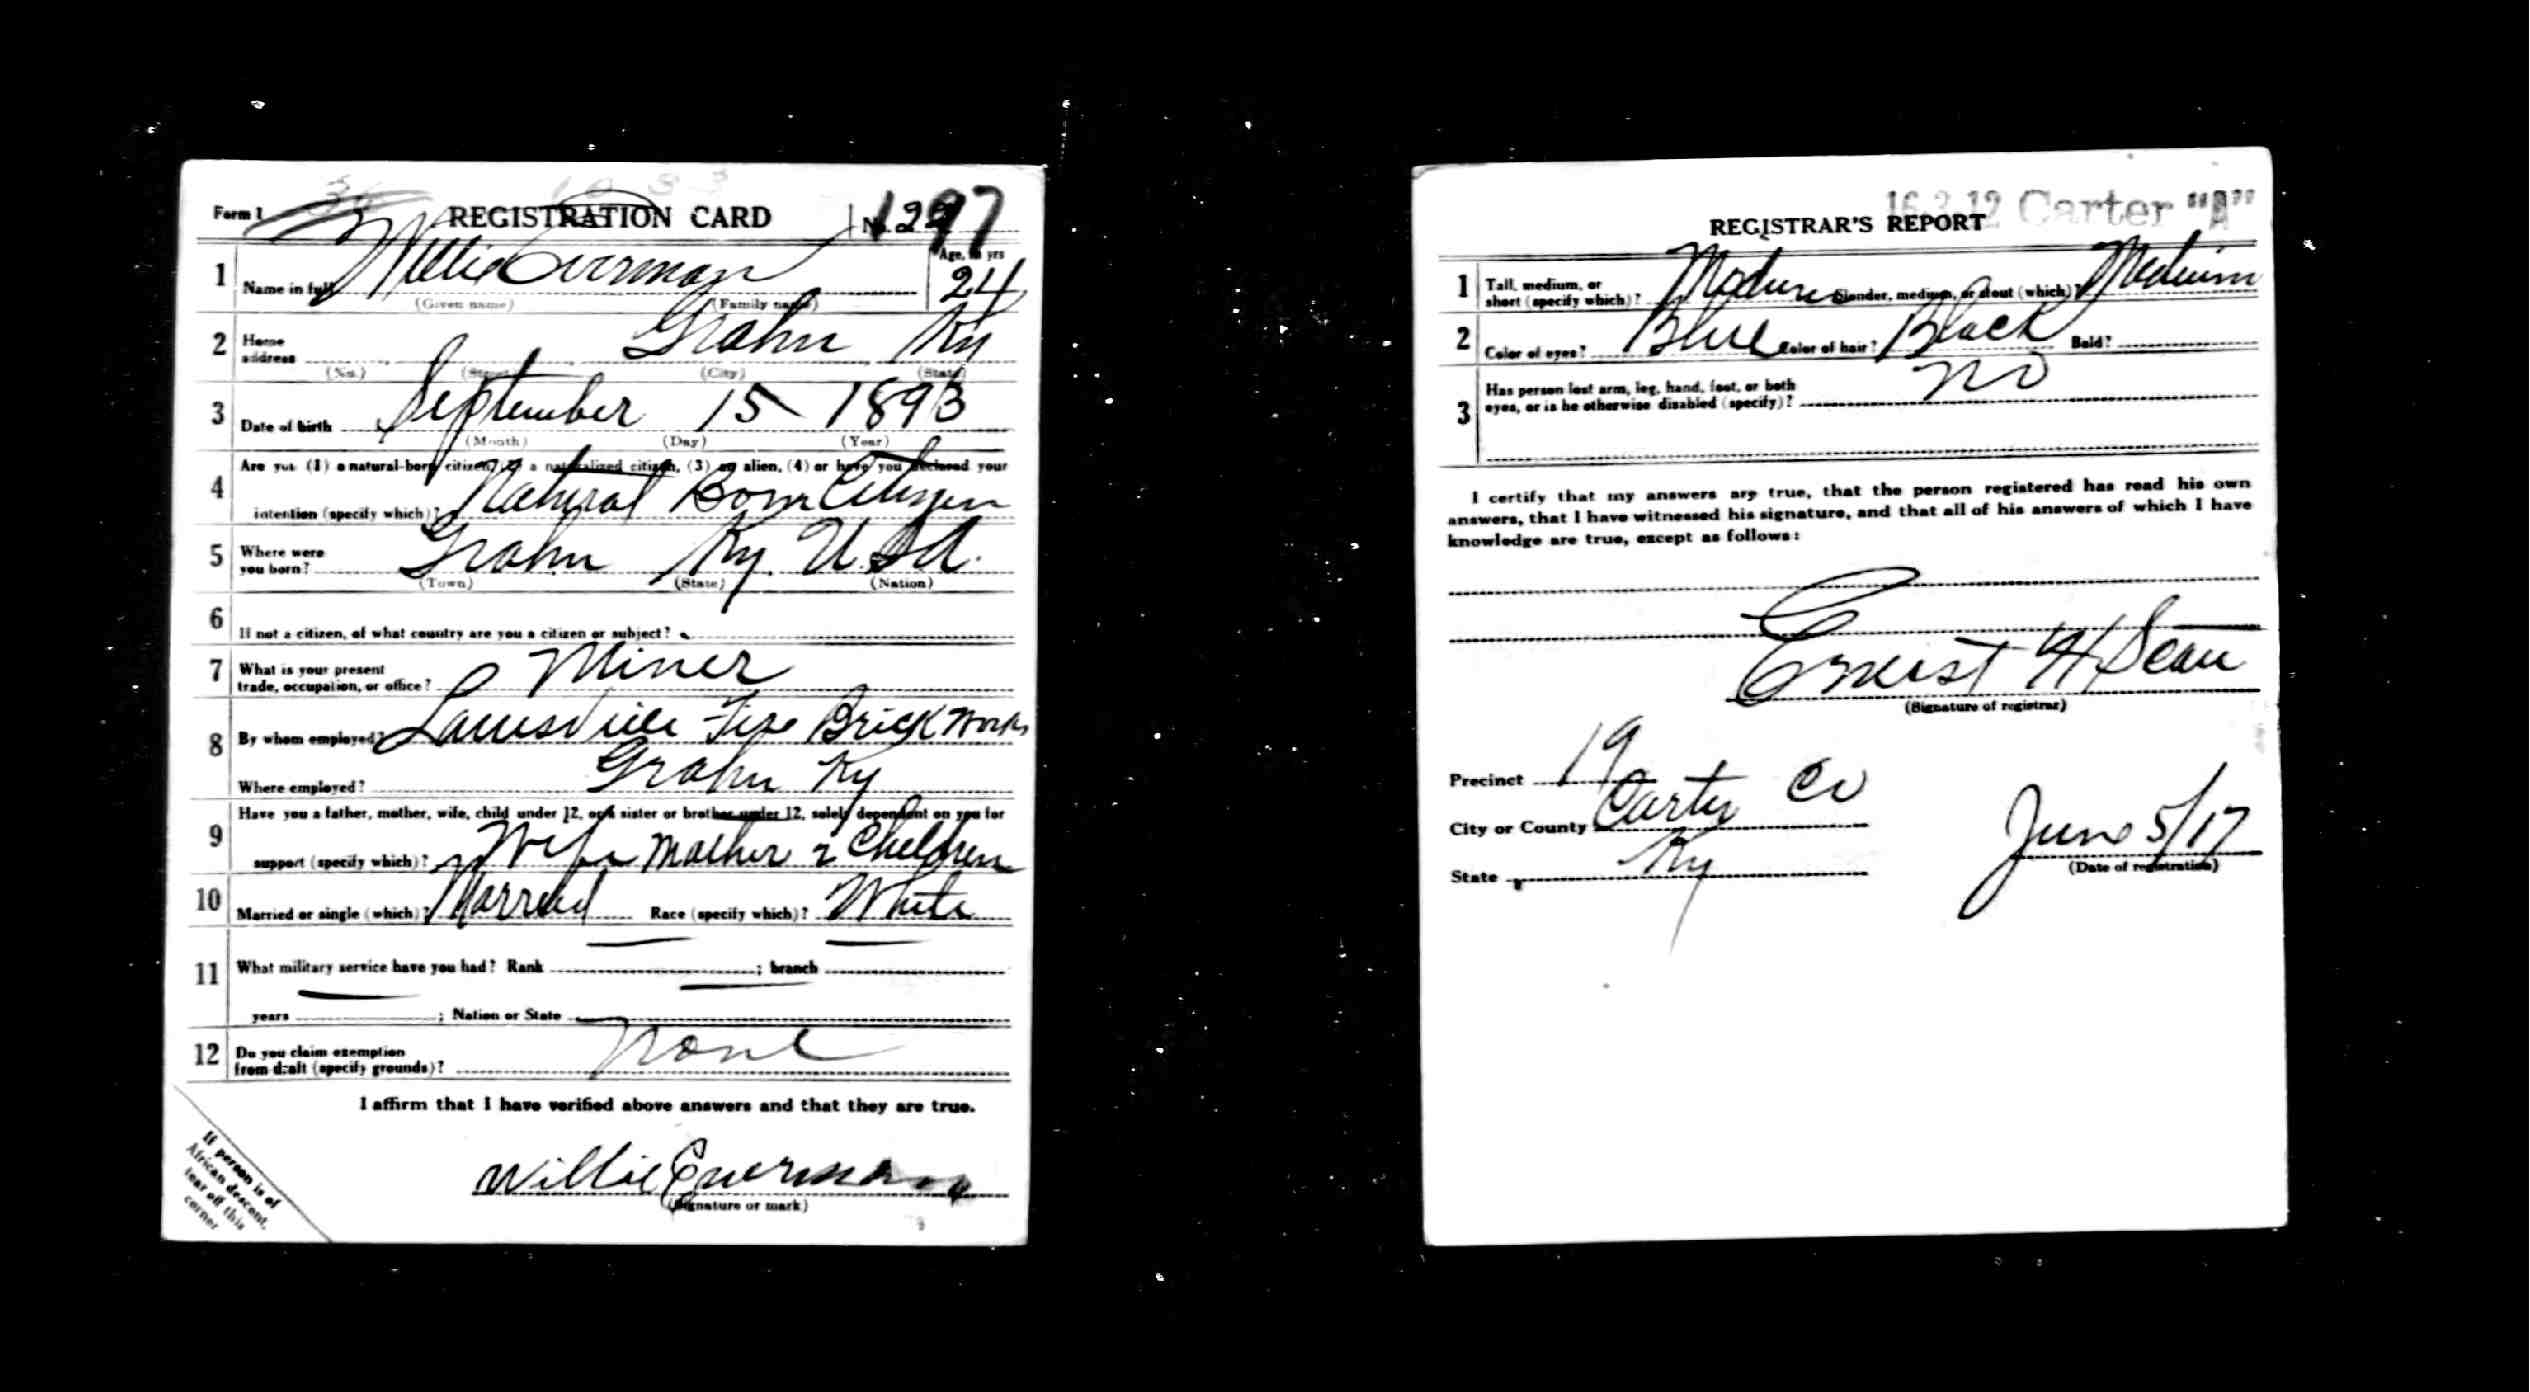 Form 1 REGISTRATION CARD No. 1297
1 Name in full Willie Everman Age, in yrs 24
(Given name) (Family name)
2 Home address Grahn Ky
(No.) (Street) (City) (State)
3 Date of birth September 15 1893
(Month) (Day) (Year)
4 Are you (1) a natural-born citizen, (2) a naturalized citizen, (3) an alien, (4) or have you declared your
intention (specify which)? Natural Born Citizen
5 Where were you born? Grahn Ky. U.S.A.
(Town) (State) (Nation)
6 If not a citizen, of what country are you a citizen or subject?
7 What is your present trade, occupation, or office? Miner
8 By whom employed? Louisville Fire Brick Works
Where employed? Grahn Ky
9 Have you a father, mother, wife, child under 12, or a sister or brother under 12, solely dependent on you for
support (specify which)? Wife Mother 2 Children
10 Married or single (which)? Married Race (specify which)? White
11 What military service have you had? Rank ; branch
years ; Nation or State
12 Do you claim exemption from draft (specify grounds)? None
I affirm that I have verified above answers and that they are true.
Willie Everman
(Signature or mark)
If person is of
African descent,
tear off this
corner
Carter "A"
REGISTRAR'S REPORT
1 Tall, medium, or short (specify which)? Medium Slender, medium, or stout (which)? Medium
2 Color of eyes? Blue Color of hair? Black Bald?
3 Has person lost arm, leg, hand, foot, or both
eyes, or is he otherwise disabled (specify)? no
I certify that my answers are true, that the person registered has read his own
answers, that I have witnessed his signature, and that all of his answers of which I have
knowledge are true, except as follows:
Ernest H Dean
(Signature of registrar)
Precinct 19
City or County Carter Co
State Ky
June 5/17
(Date of registration)